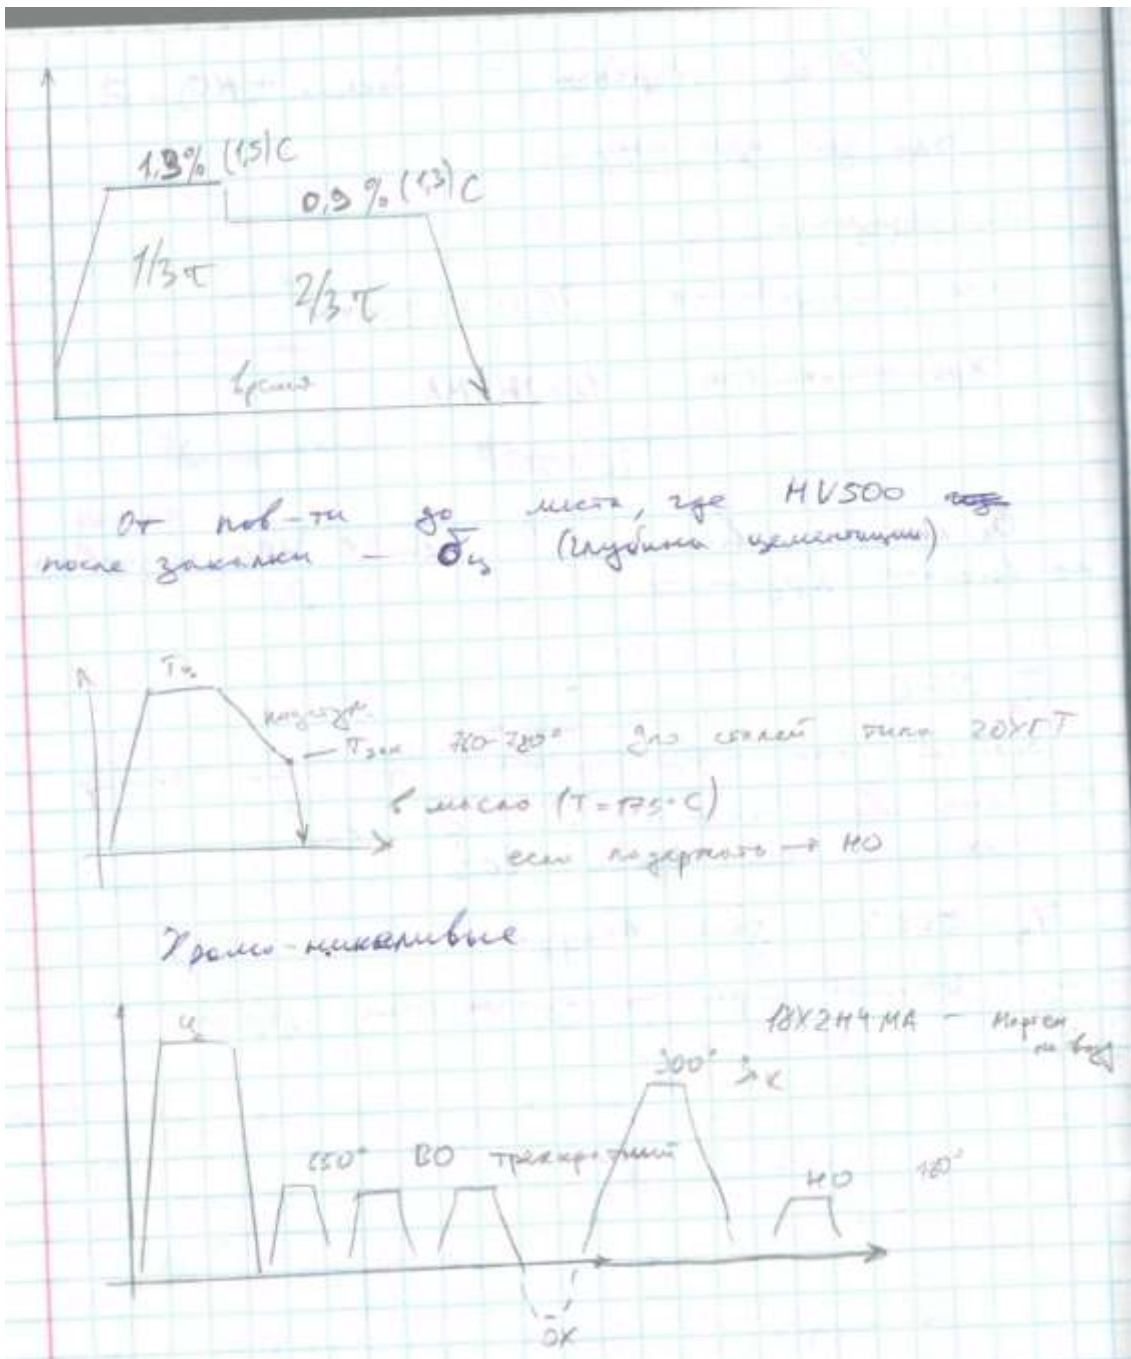 1,3% (1,5) С
0,9 % (1,3) С
1/3 τ
2/3 τ
время
От пов-ти до места, где HV500
после закалки — δц (глубина цементации)
Тц
подстуж.
Тзак 760-780° для сталей типа 20ХГТ
в масло (Т=175°С)
если подержать → НО
Хромо-никеливые
18Х2Н4МА — Мартен
на возд
Ц
Зак
650° ВО трехкратный
НО 180°
ОХ